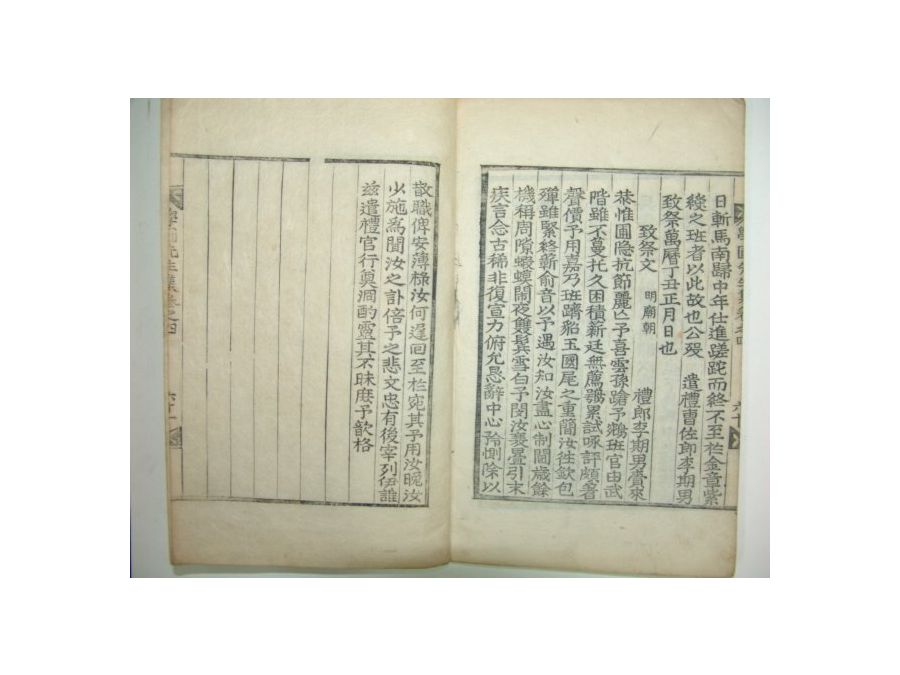 日斬馬南歸中年仕進蹉跎而終不至於金章紫
綬之班者以此故也公歿 遣禮曹佐郎李期男
致祭萬曆丁丑正月日也
致祭文 明廟朝 禮郎李期男賷來
恭惟圃隱抗節麗亾予喜雲孫蹌予鵷班官由武
階雖不蔓托久困積薪廷無薦鶚累試啄評頗著
聲價予用嘉乃班躋貂玉國尾之重簡汝徃欽包
殫雖緊終蘄俞音以予遇汝知汝盡心制閫歲餘
機稱周隙蝦蟹閙夜雙鬂雪白予閔汝裏疊引末
疾言念古稀非復宣力俯允恳辭中心矜惻除以
學圃先生集卷之四 六十
散職俾安薄祿汝何遽回至於宛其予用汝晩汝
少施爲聞汝之訃倍予之悲文忠有後宰列伊誰
玆遣禮官行奠泂酌靈其不昧庶予歆格
學圃先生集卷之四 六十一